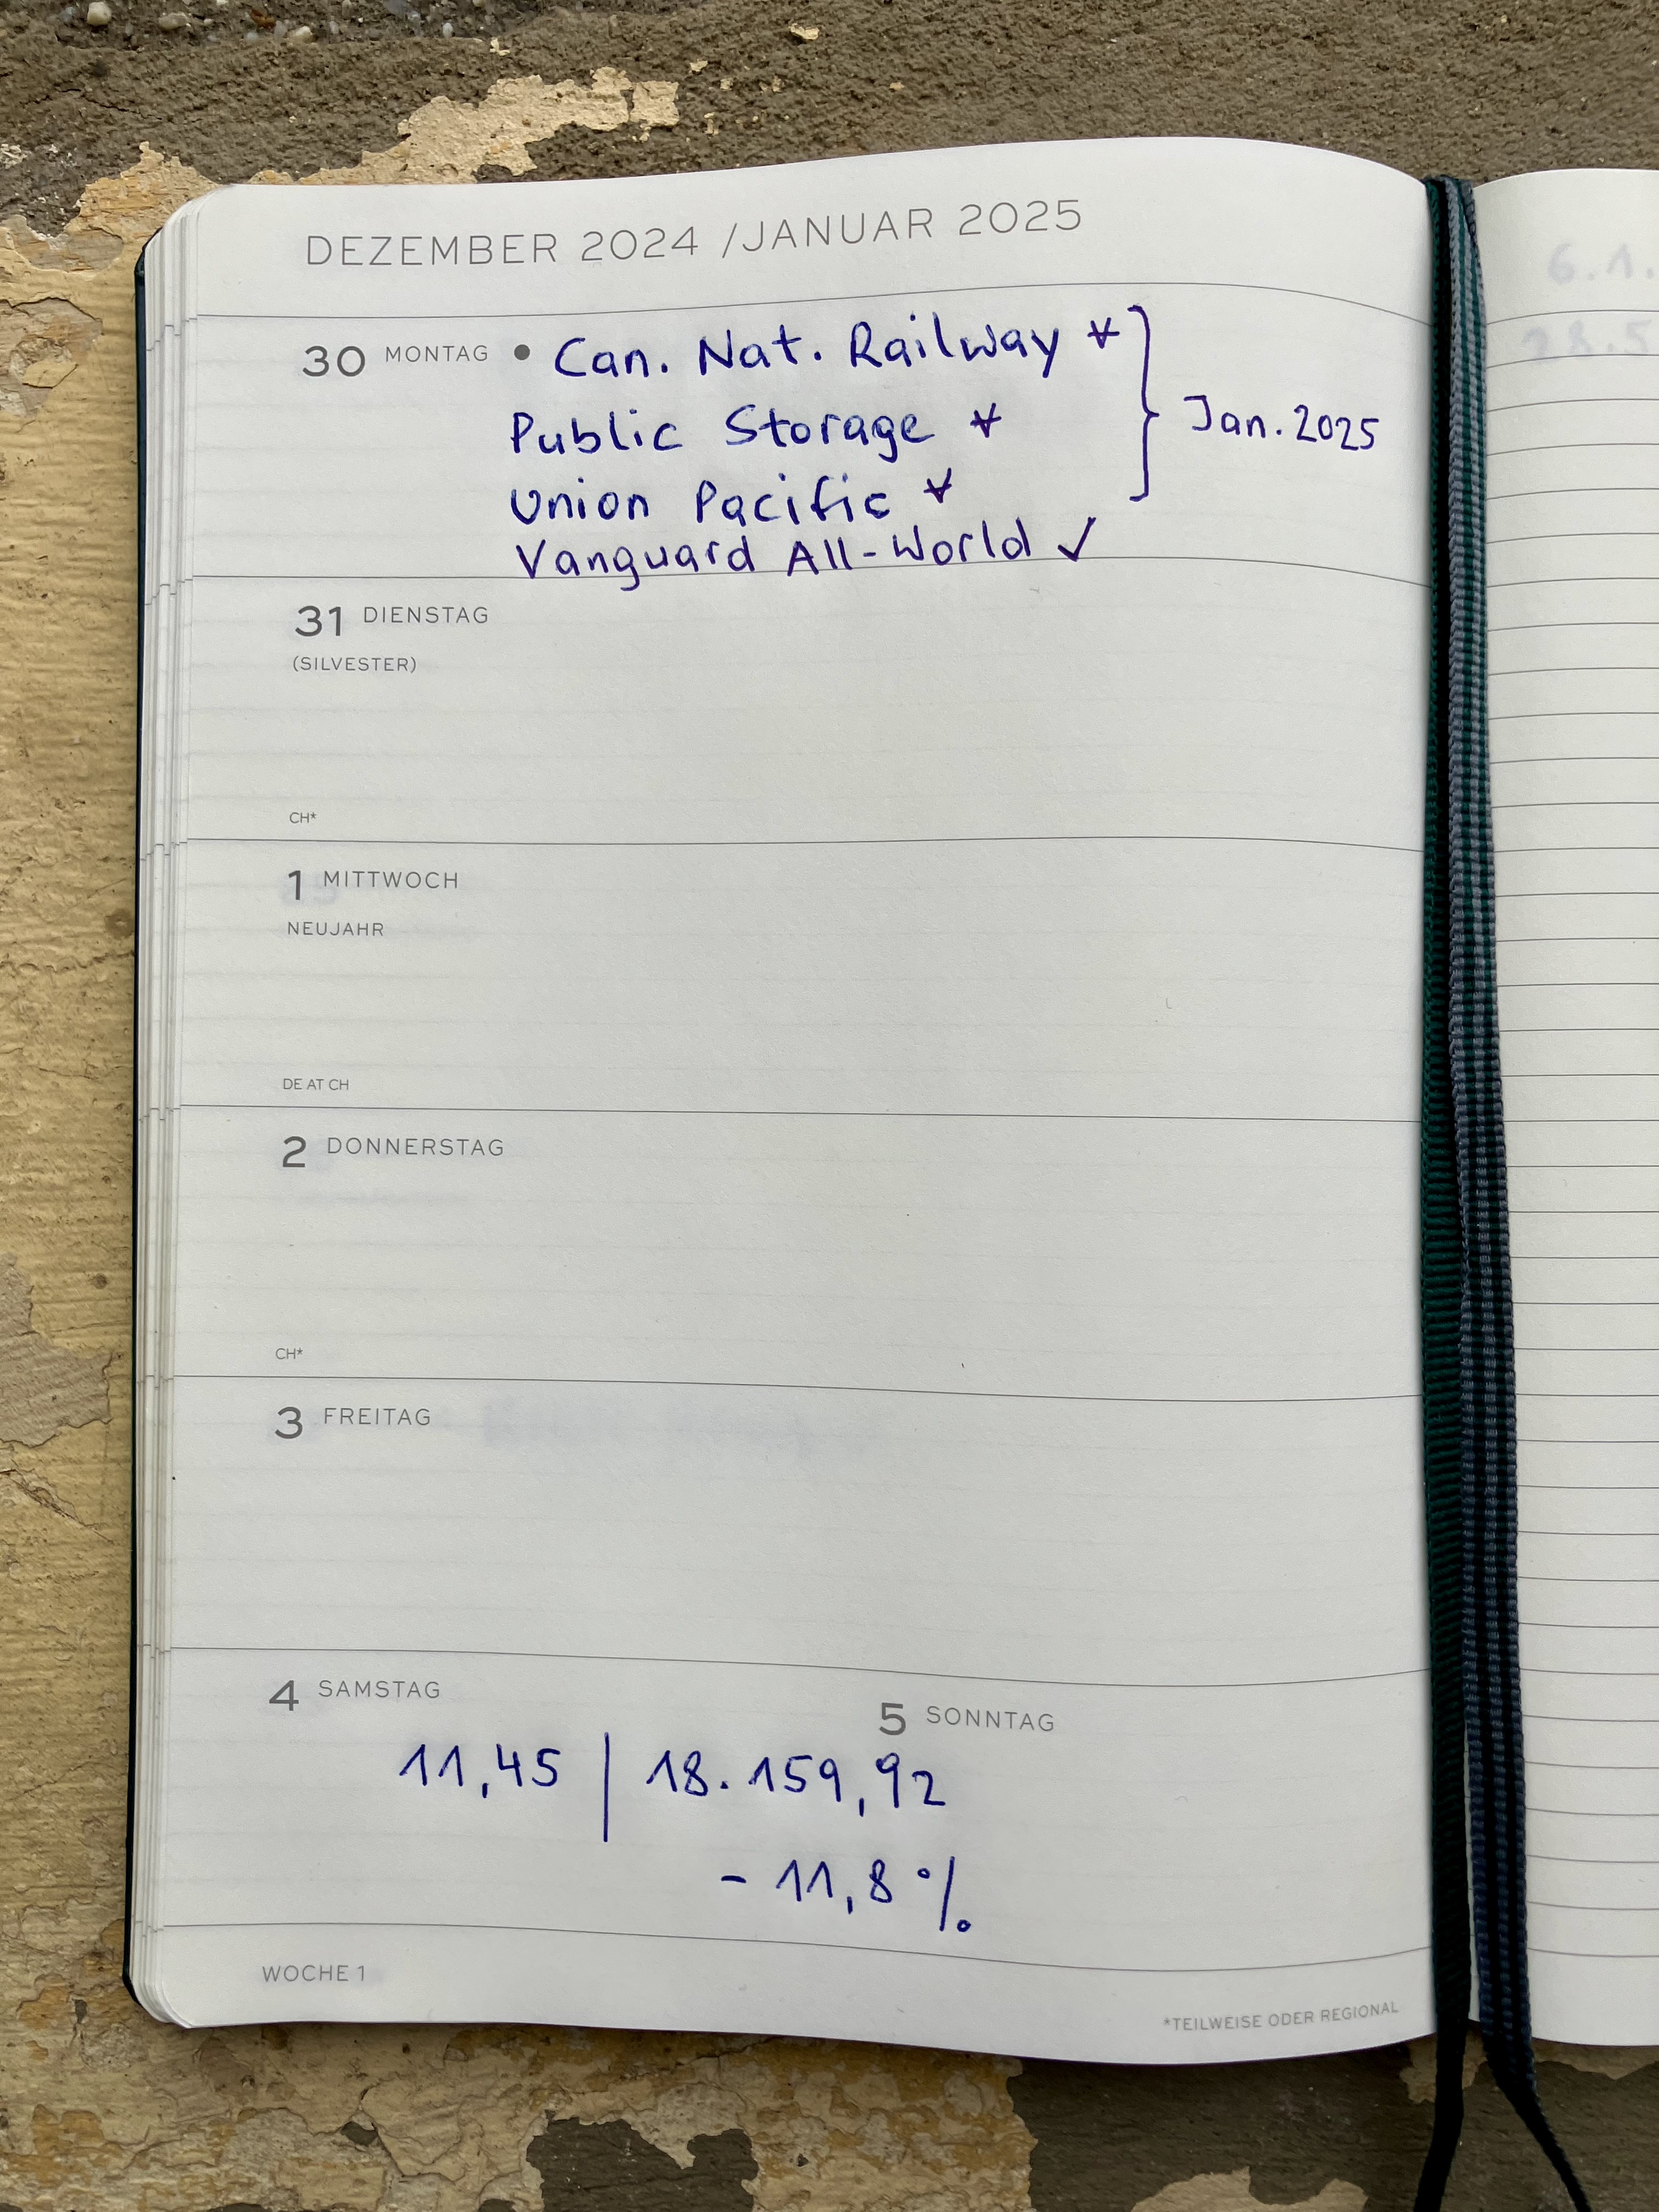 DEZEMBER 2024 /JANUAR 2025
30 MONTAG • Can. Nat. Railway *
Public Storage *
Union Pacific *
} Jan. 2025
Vanguard All-World ✓
31 DIENSTAG
(SILVESTER)
CH*
1 MITTWOCH
NEUJAHR
DE AT CH
2 DONNERSTAG
CH*
3 FREITAG
4 SAMSTAG
5 SONNTAG
11,45 | 18.159,92
- 11,8 %
WOCHE 1
*TEILWEISE ODER REGIONAL
6.1.